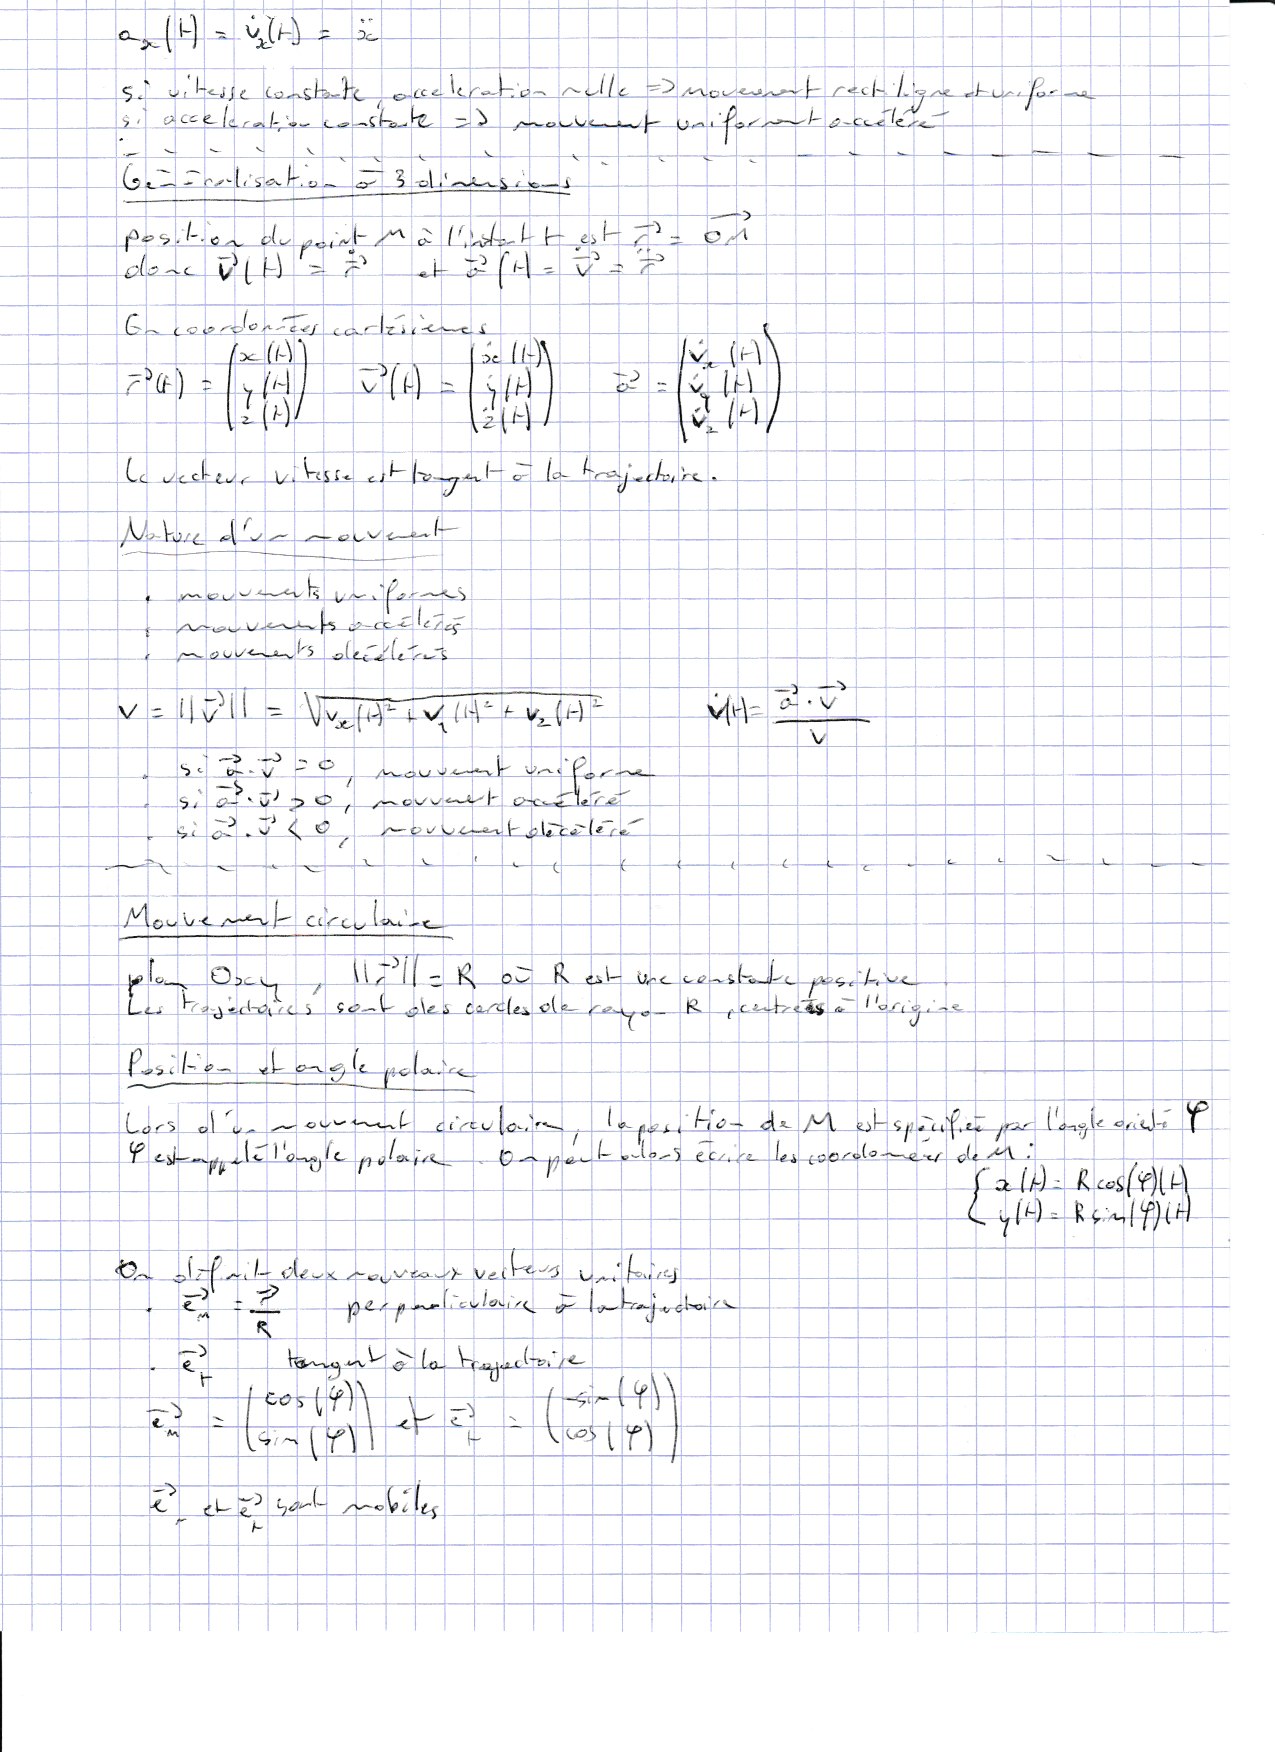 aₓ(t) = v̇ₓ(t) = ẍ
si vitesse constante, acceleration nulle => mouvement rectiligne et uniforme
si acceleration constante => mouvement uniformément accéléré
Généralisation à 3 dimensions
position du point M à l'instant t est r⃗ = OM⃗
donc v⃗(t) = r⃗̇ et a⃗(t) = v⃗̇ = r⃗̈
En coordonnées cartésiennes
r⃗(t) = (x(t) y(t) z(t)) v⃗(t) = (ẋ(t) ẏ(t) ż(t)) a⃗ = (v̇ₓ(t) v̇y(t) v̇z(t))
Le vecteur vitesse est tangent à la trajectoire.
Nature d'un mouvement
. mouvements uniformes
. mouvements accélérés
. mouvements décélérés
v = ||v⃗|| = √(vₓ(t)² + vy(t)² + vz(t)²) v̇(t) = a⃗·v⃗ / v
. si a⃗·v⃗ = 0, mouvement uniforme
. si a⃗·v⃗ > 0, mouvement accéléré
. si a⃗·v⃗ < 0, mouvement décéléré
Mouvement circulaire
plan Oxy, ||r⃗|| = R où R est une constante positive.
Les trajectoires sont des cercles de rayon R, centrés à l'origine
Position et angle polaire
Lors d'un mouvement circulaire, la position de M est spécifiée par l'angle orienté φ
φ est appelé l'angle polaire. On peut alors écrire les coordonnées de M :
{ x(t) = R cos(φ)(t)
y(t) = R sin(φ)(t)
On définit deux nouveaux vecteurs unitaires
. e⃗n = r⃗/R perpendiculaire à la trajectoire
. e⃗t tangent à la trajectoire
e⃗n = (cos(φ) sin(φ)) et e⃗t = (-sin(φ) cos(φ))
e⃗n et e⃗t sont mobiles